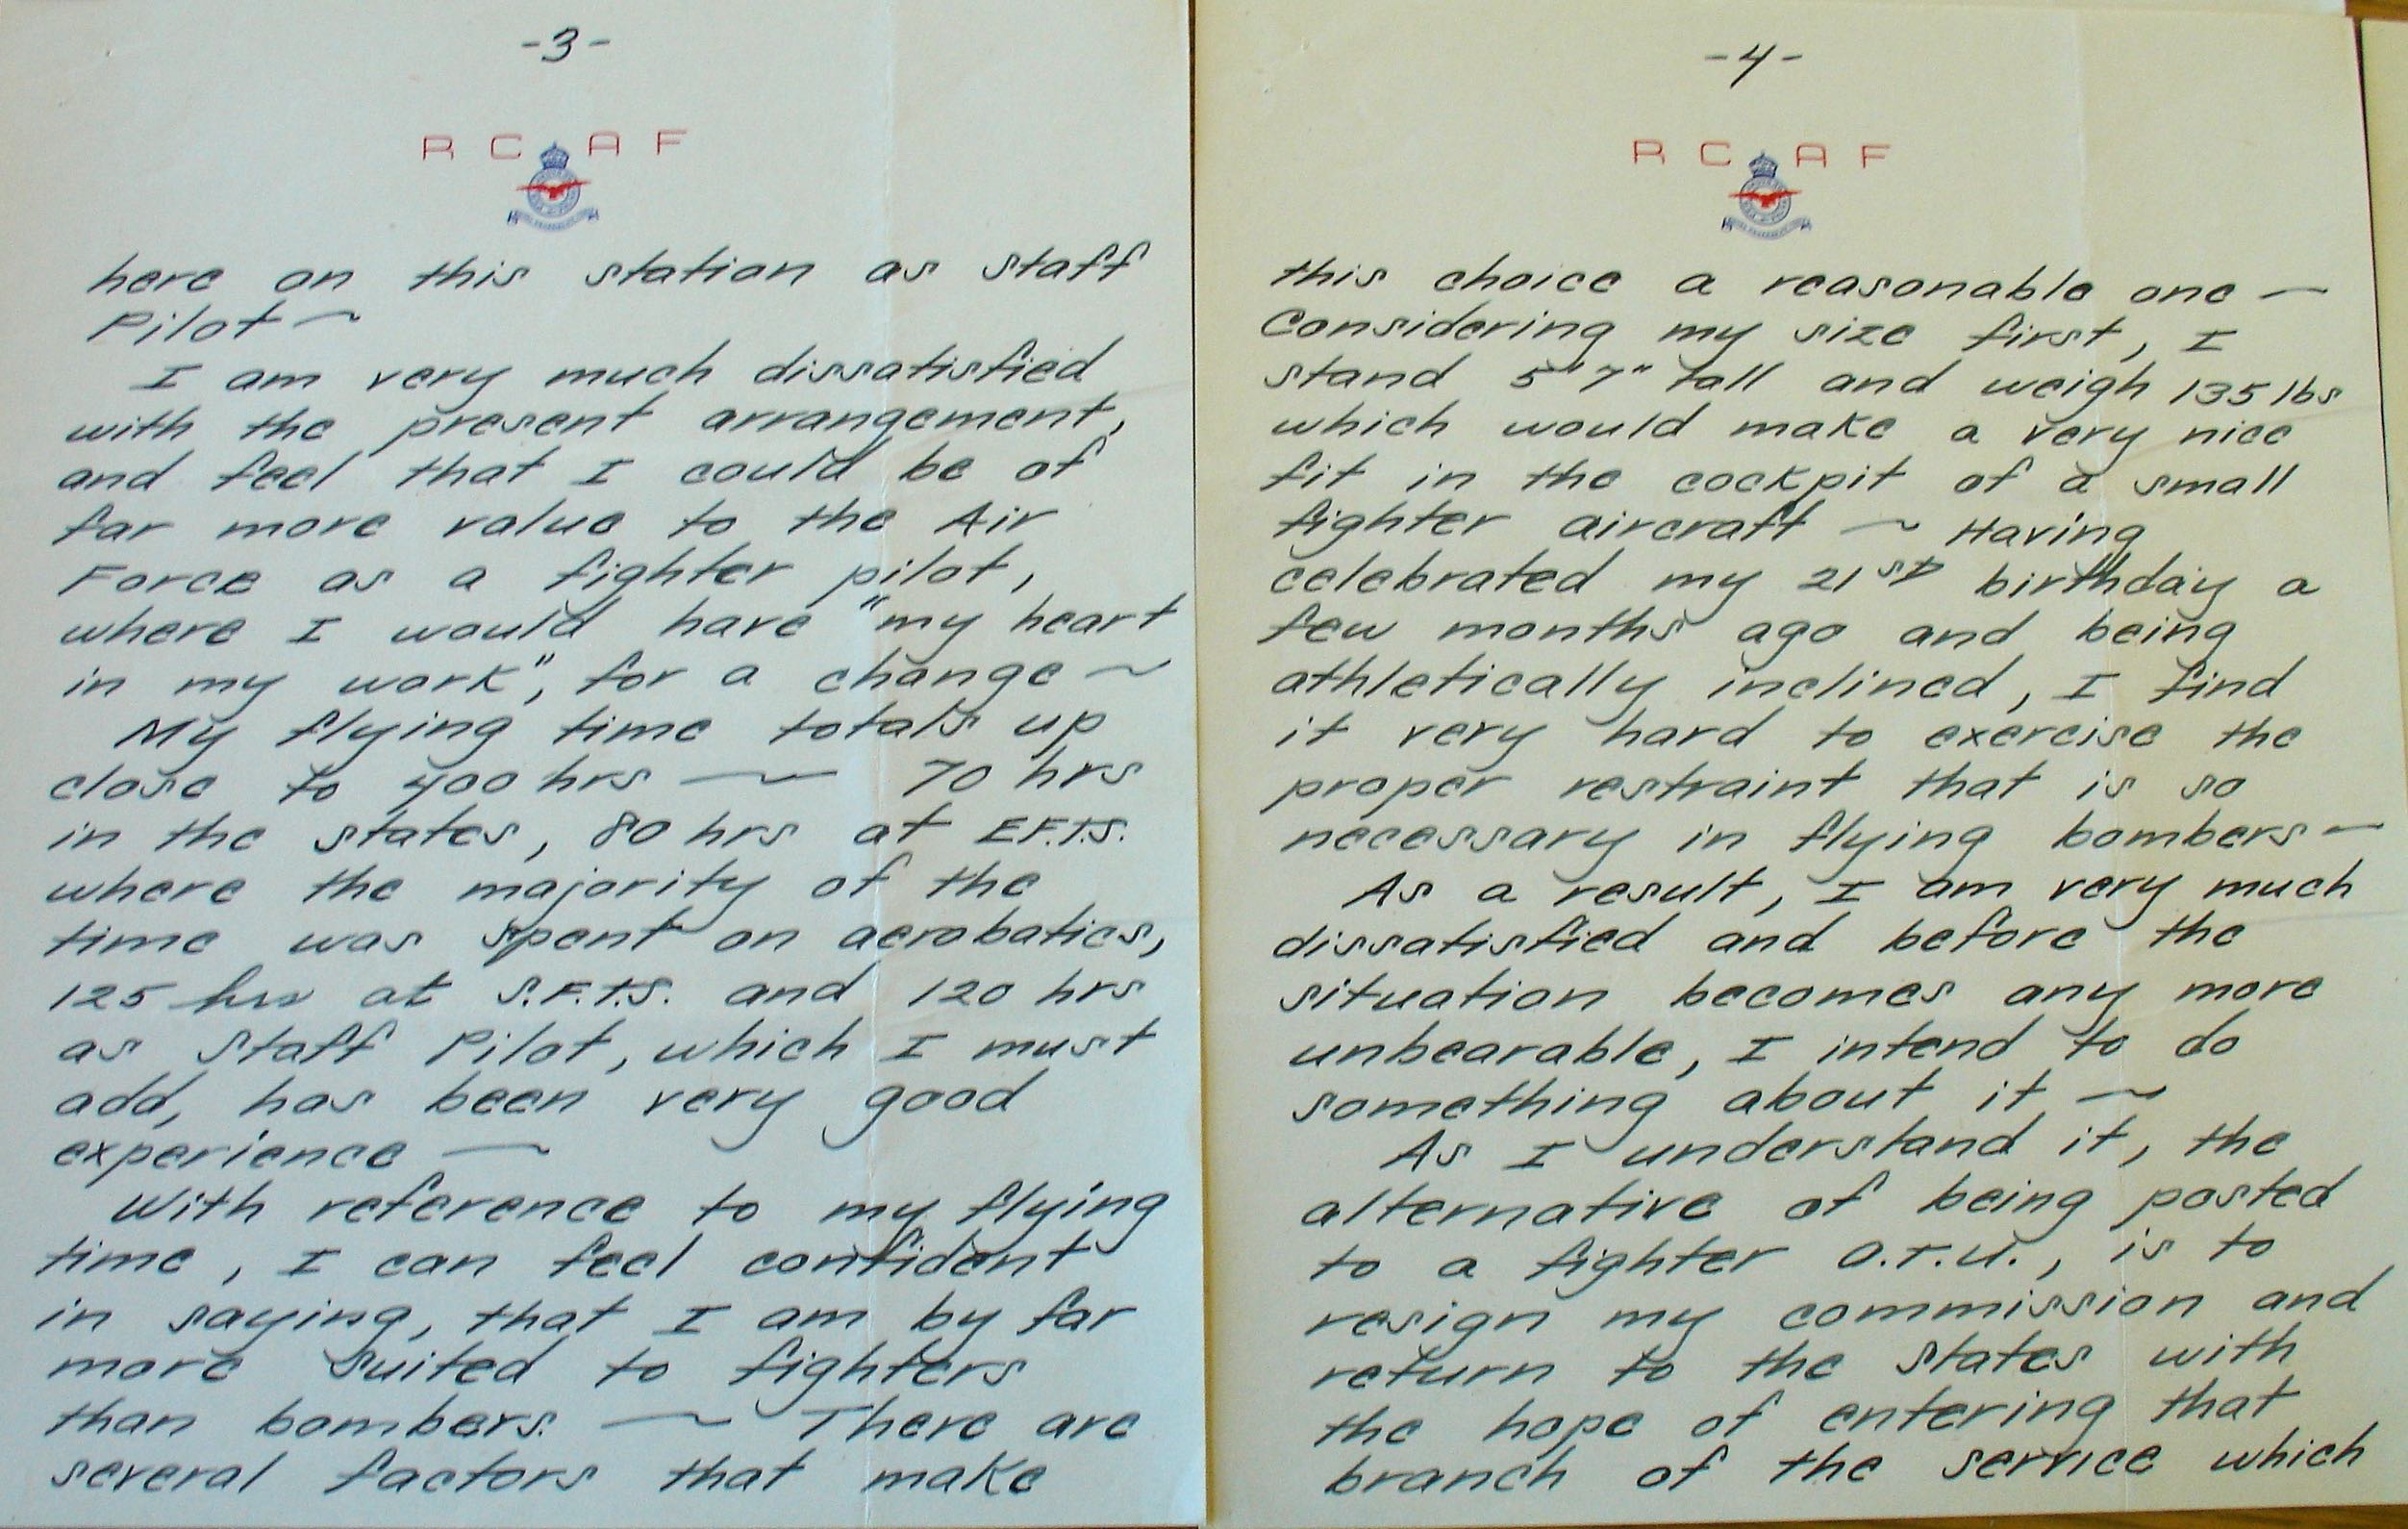 -3-
R C A F
here on this station as staff
Pilot ~
I am very much dissatisfied
with the present arrangement,
and feel that I could be of
far more value to the Air
Force as a fighter pilot,
where I would have "my heart
in my work", for a change ~
My flying time totals up
close to 400 hrs — 70 hrs
in the states, 80 hrs at E.F.T.S.
where the majority of the
time was spent on aerobatics,
125 hrs at S.F.T.S. and 120 hrs
as Staff Pilot, which I must
add, has been very good
experience —
With reference to my flying
time, I can feel confident
in saying, that I am by far
more suited to fighters
than bombers. — There are
several factors that make
-4-
R C A F
this choice a reasonable one —
Considering my size first, I
stand 5'7" tall and weigh 135 lbs
which would make a very nice
fit in the cockpit of a small
fighter aircraft ~ Having
celebrated my 21st birthday a
few months ago and being
athletically inclined, I find
it very hard to exercise the
proper restraint that is so
necessary in flying bombers —
As a result, I am very much
dissatisfied and before the
situation becomes any more
unbearable, I intend to do
something about it ~
As I understand it, the
alternative of being posted
to a fighter O.T.U., is to
resign my commission and
return to the States with
the hope of entering that
branch of the service which